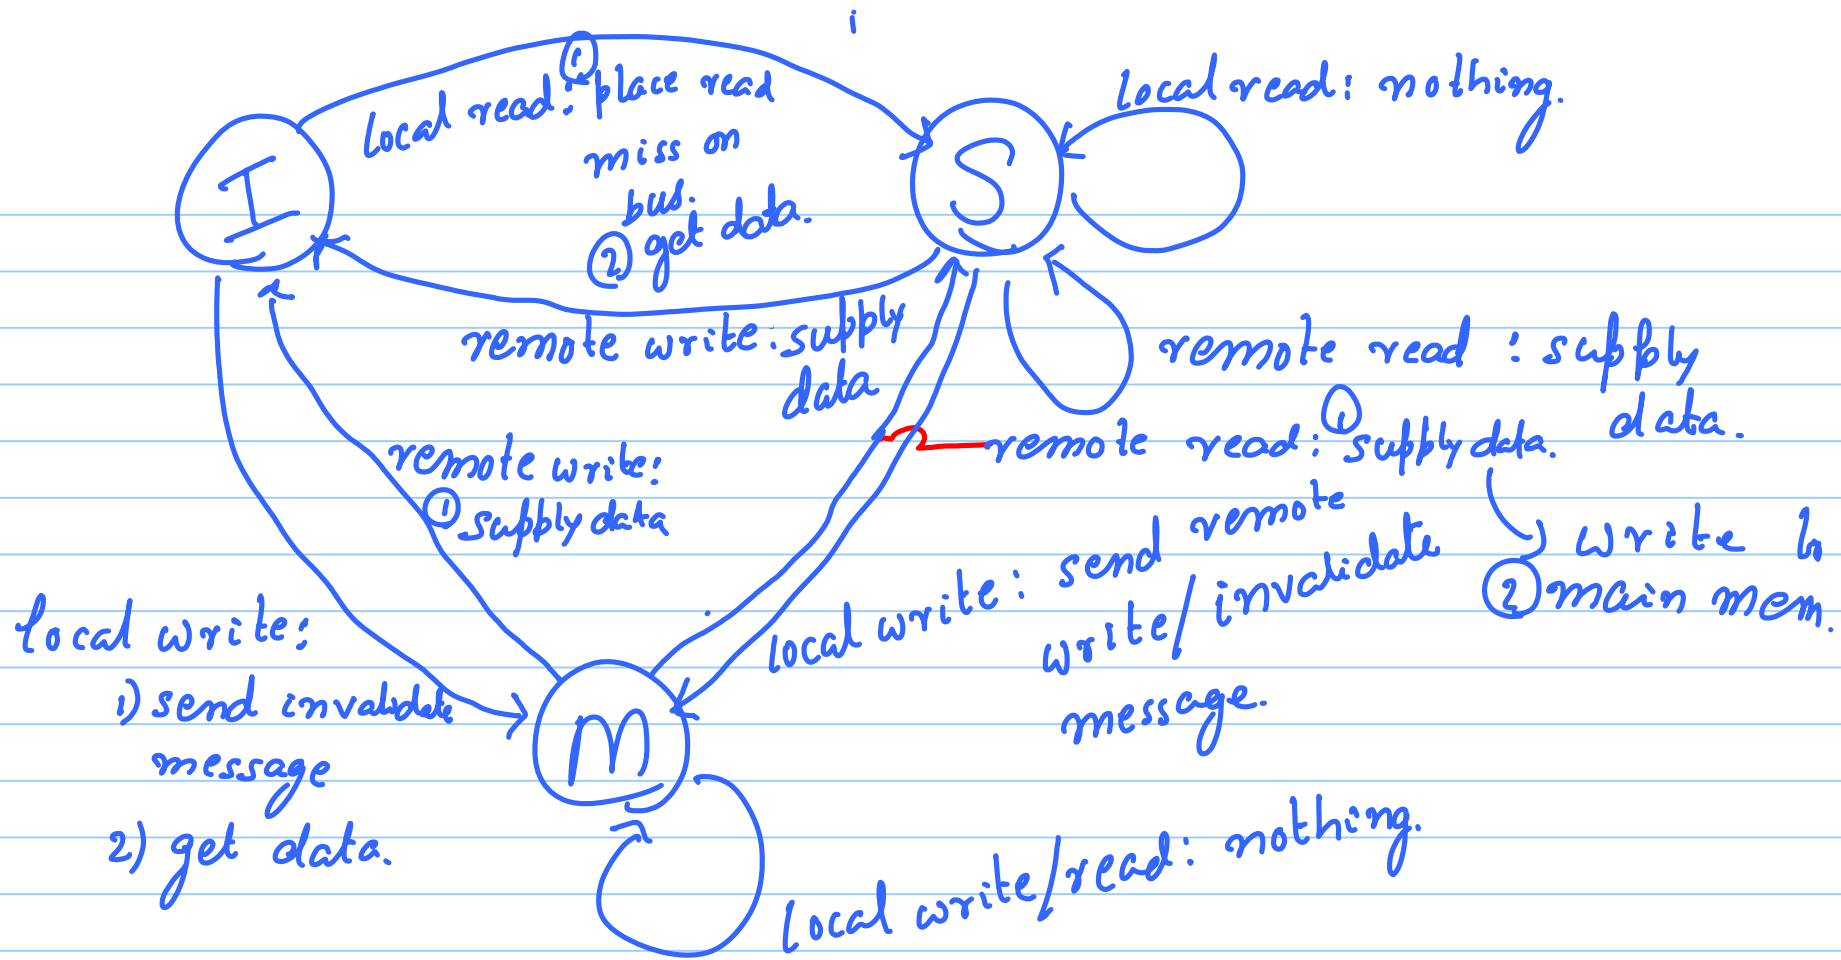 i
① 
local read: place read
miss on
bus.
② get data.
I
S
local read: nothing.
remote write: supply
data
remote read : supply
data.
remote read: ① supply data.
② write to
main mem.
remote write:
① supply data
local write: send remote
write/invalidate
message.
local write:
1) send invalidate
message
2) get data.
M
local write/read: nothing.